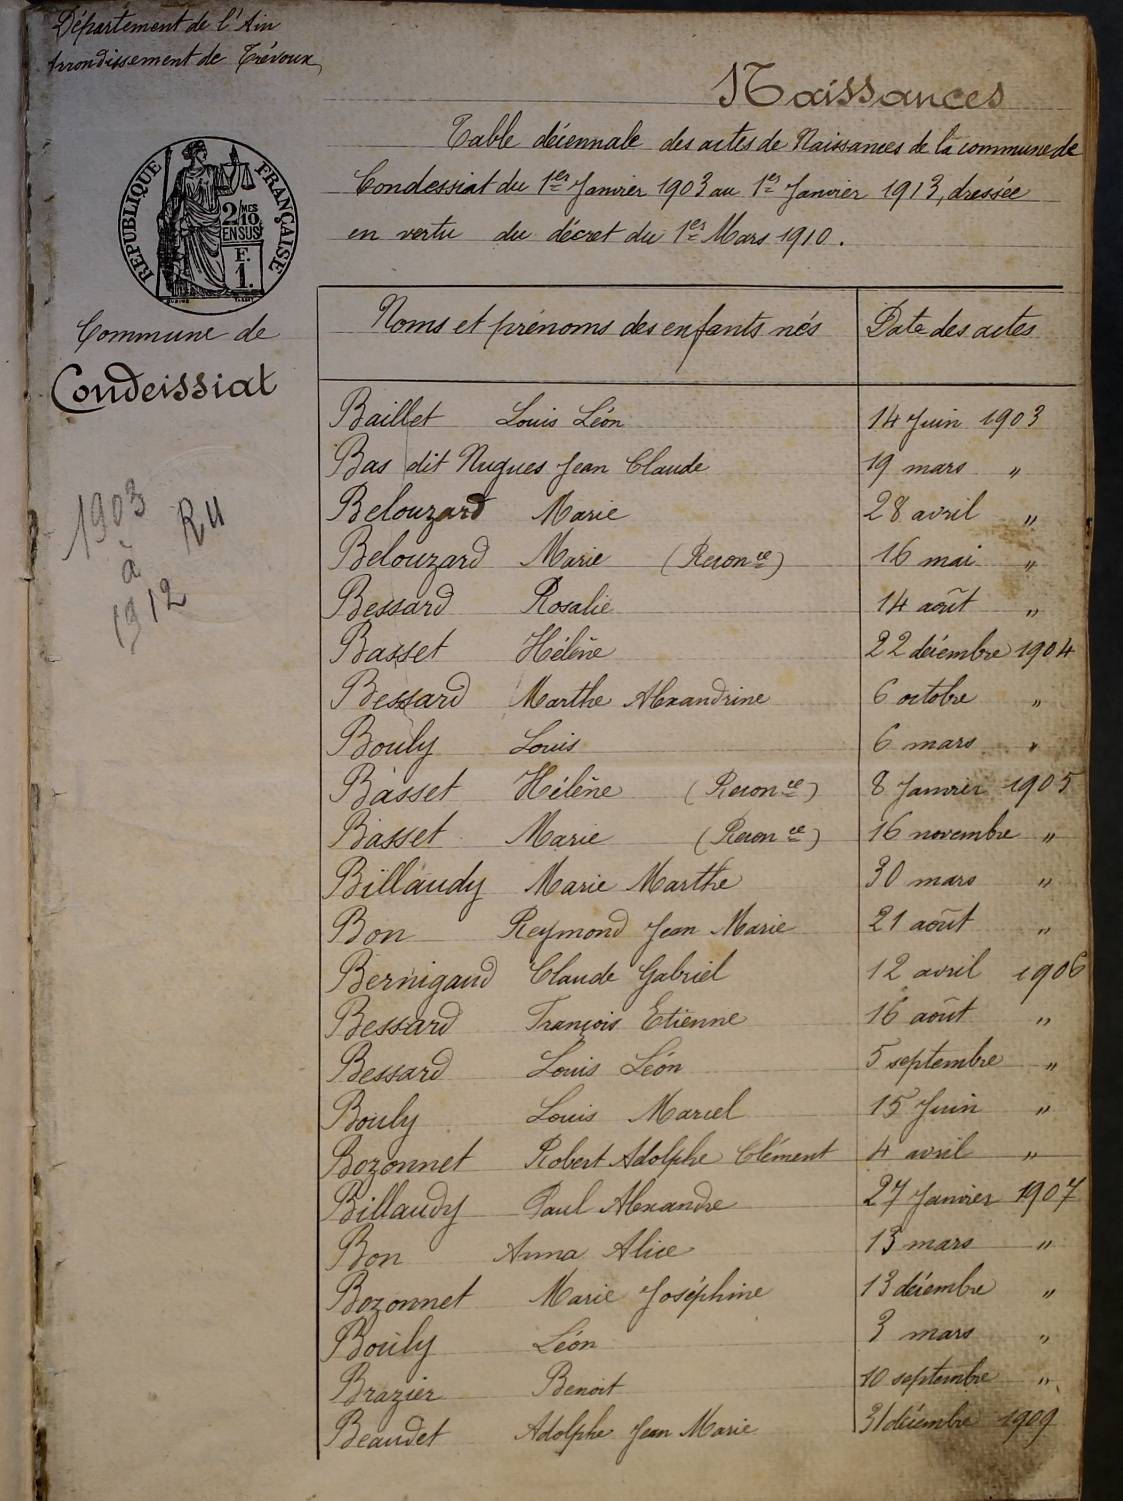 Département de l'Ain
Arrondissement de Trévoux
Naissances
Table décennale des actes de Naissances de la commune de
Condessiat du 1er Janvier 1903 au 1er Janvier 1913, dressée
en vertu du décret du 1er Mars 1910.
RÉPUBLIQUE FRANÇAISE
2/MES
10
EN SUS
F.
1.
Commune de
Condeissiat
1903
à
1912
R4
Noms et prénoms des enfants nés Date des actes
Baillet Louis Léon 14 Juin 1903
Bas dit Nugues Jean Claude 19 mars "
Belouzard Marie 28 avril "
Belouzard Marie (Reconce) 16 mai "
Bessard Rosalie 14 août "
Basset Hélène 22 décembre 1904
Bessard Marthe Alexandrine 6 octobre "
Bouly Louis 6 mars "
Basset Hélène (Reconce) 8 Janvier 1905
Basset Marie (Reconce) 16 novembre "
Billaudy Marie Marthe 30 mars "
Bon Reymond Jean Marie 21 août "
Bernigaud Claude Gabriel 12 avril 1906
Bessard François Etienne 16 août "
Bessard Louis Léon 5 septembre "
Bouly Louis Marcel 15 Juin "
Bozonnet Robert Adolphe Clément 4 avril "
Billaudy Paul Alexandre 27 Janvier 1907
Bon Anna Alice 13 mars "
Bozonnet Marie Joséphine 13 décembre "
Bouly Léon 3 mars "
Brazier Benoit 10 septembre "
Beaudet Adolphe Jean Marie 31 décembre 1909